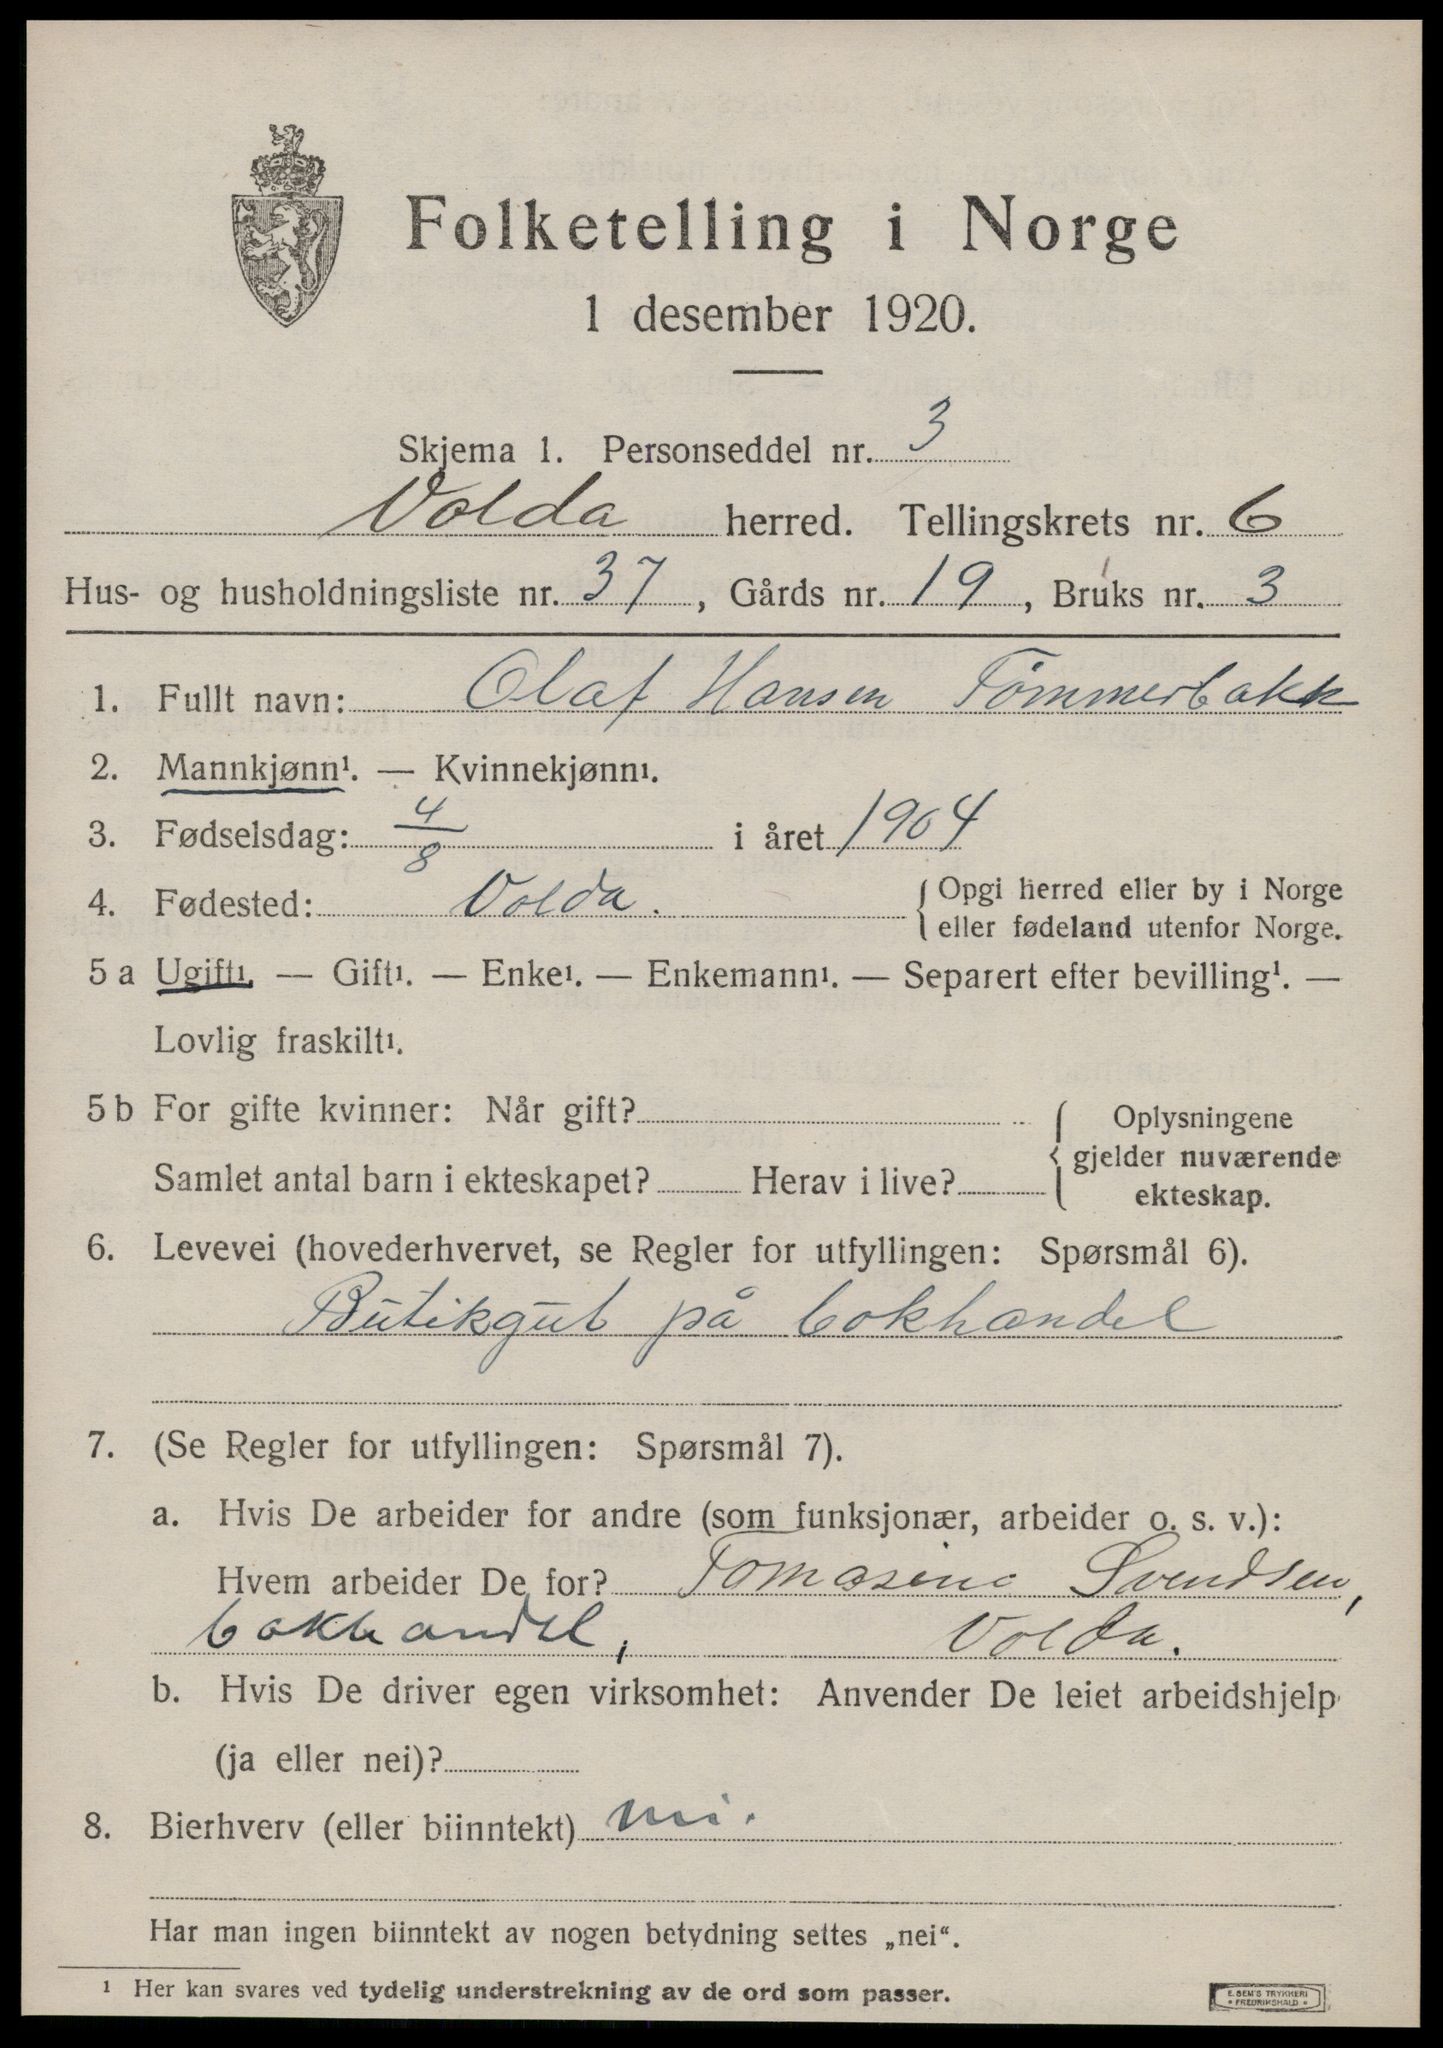 Folketelling i Norge
1 desember 1920.
Skjema 1. Personseddel nr. 3
Volda herred. Tellingskrets nr. 6
Hus- og husholdningsliste nr. 37, Gårds nr. 19, Bruks nr. 3
1. Fullt navn: Olaf Hansen Tømmerbakk
2. Mannkjønn¹. — Kvinnekjønn¹.
3. Fødselsdag: 4/8 i året 1904
4. Fødested: Volda. { Opgi herred eller by i Norge
eller fødeland utenfor Norge.
5 a Ugift¹. — Gift¹. — Enke¹. — Enkemann¹. — Separert efter bevilling¹. —
Lovlig fraskilt¹.
5 b For gifte kvinner: Når gift? { Oplysningene
gjelder nuværende
Samlet antal barn i ekteskapet? Herav i live? ekteskap.
6. Levevei (hovederhvervet, se Regler for utfyllingen: Spørsmål 6).
Butikgut på bokhandel
7. (Se Regler for utfyllingen: Spørsmål 7).
a. Hvis De arbeider for andre (som funksjonær, arbeider o. s. v.):
Hvem arbeider De for? Tomasine Svendsen,
bokhandel, Volda.
b. Hvis De driver egen virksomhet: Anvender De leiet arbeidshjelp
(ja eller nei)?
8. Bierhverv (eller biinntekt) nei.
Har man ingen biinntekt av nogen betydning settes „nei“.
¹ Her kan svares ved tydelig understrekning av de ord som passer.
E. SEM'S TRYKKERI
* FREDRIKSHALD *